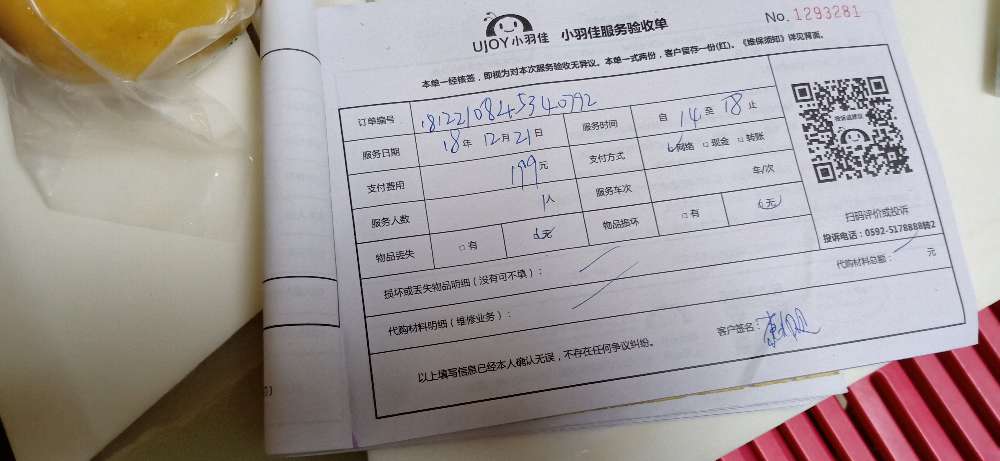 UJOY小羽佳 小羽佳服务验收单 No.1293281
本单一经核签，即视为对本次服务验收无异议。本单一式两份，客户留存一份(红)。《维保须知》详见背面。
订单编号 1812210845340792
服务日期 18年12月21日 服务时间 自 14 至 18 止
支付费用 199元 支付方式 网络 □现金 □转账
服务人数 1人 服务车次 车/次
物品丢失 □有 无 物品损坏 □有 无
损坏或丢失物品明细（没有可不填）：
代购材料明细（维修业务）： 代购材料总额： 元
以上填写信息已经本人确认无误，不存在任何争议纠纷。 客户签名：
投诉或建议
扫码评价或投诉
投诉电话：0592-5178888转2